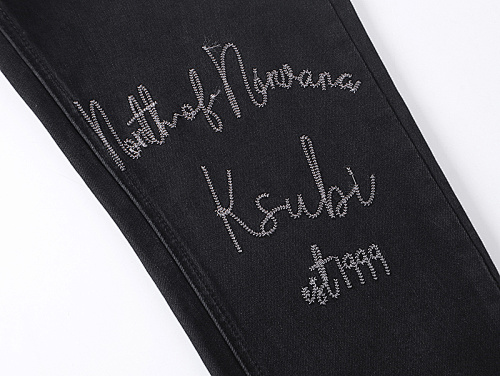 North of Nirvana
Ksubi
est 1999